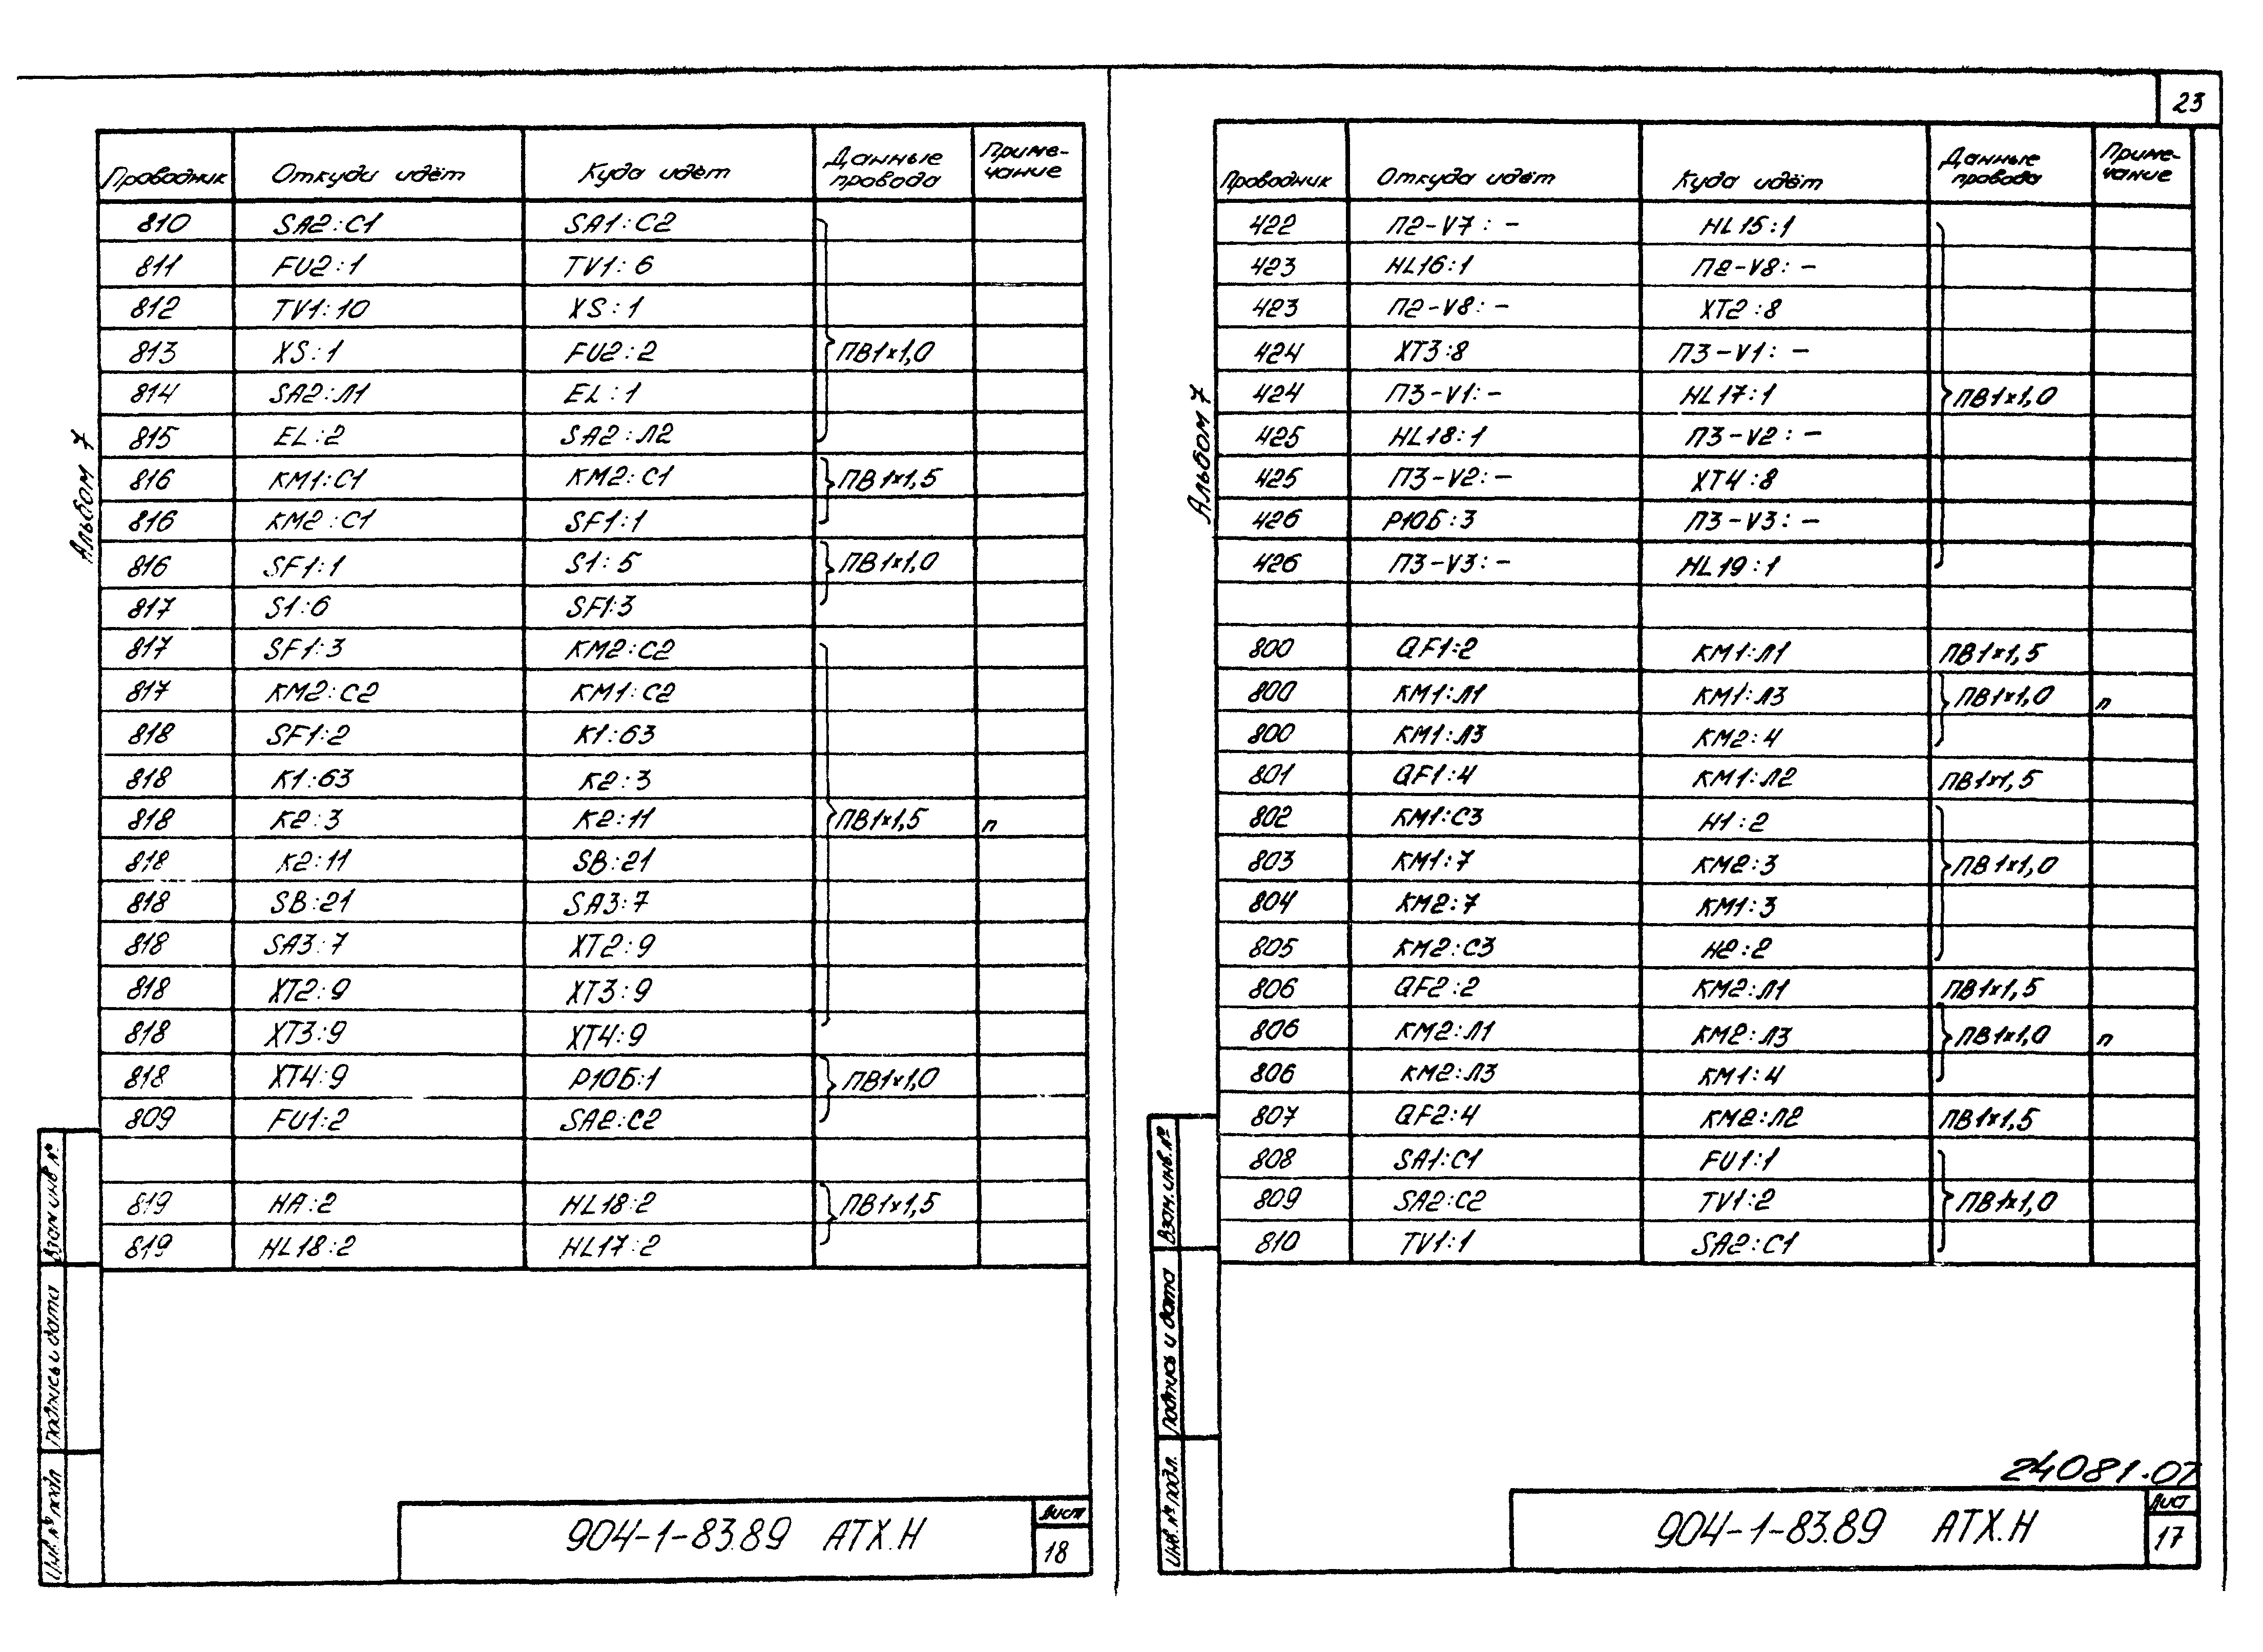 23
Альбом 7
Проводник Откуда идёт Куда идёт Данные провода Приме-чание
810 SA2:C1 SA1:C2
811 FU2:1 TV1:6
812 TV1:10 XS:1
813 XS:1 FU2:2 ПВ1×1,0
814 SA2:Л1 EL:1
815 EL:2 SA2:Л2
816 KM1:C1 KM2:C1 ПВ1×1,5
816 KM2:C1 SF1:1
816 SF1:1 S1:5 ПВ1×1,0
817 S1:6 SF1:3
817 SF1:3 KM2:C2
817 KM2:C2 KM1:C2
818 SF1:2 K1:63
818 K1:63 K2:3
818 K2:3 K2:11 ПВ1×1,5 п
818 K2:11 SB:21
818 SB:21 SA3:7
818 SA3:7 XT2:9
818 XT2:9 XT3:9
818 XT3:9 XT4:9
818 XT4:9 Р10Б:1 ПВ1×1,0
809 FU1:2 SA2:C2
819 HA:2 HL18:2 ПВ1×1,5
819 HL18:2 HL17:2
Взам инв №
Подпись и дата
Инв. № подл
904-1-83.89 АТХ.Н
Лист
18
Альбом 7
Проводник Откуда идёт Куда идёт Данные провода Приме-чание
422 П2-V7: - HL15:1
423 HL16:1 П2-V8: -
423 П2-V8: - XT2:8
424 XT3:8 П3-V1: -
424 П3-V1: - HL17:1 ПВ1×1,0
425 HL18:1 П3-V2: -
425 П3-V2: - XT4:8
426 Р10Б:3 П3-V3: -
426 П3-V3: - HL19:1
800 QF1:2 KM1:Л1 ПВ1×1,5
800 KM1:Л1 KM1:Л3 ПВ1×1,0 п
800 KM1:Л3 KM2:4
801 QF1:4 KM1:Л2 ПВ1×1,5
802 KM1:C3 H1:2
803 KM1:7 KM2:3 ПВ1×1,0
804 KM2:7 KM1:3
805 KM2:C3 H2:2
806 QF2:2 KM2:Л1 ПВ1×1,5
806 KM2:Л1 KM2:Л3 ПВ1×1,0 п
806 KM2:Л3 KM1:4
807 QF2:4 KM2:Л2 ПВ1×1,5
808 SA1:C1 FU1:1
809 SA2:C2 TV1:2 ПВ1×1,0
810 TV1:1 SA2:C1
Взам. инв. №
Подпись и дата
Инв. № подл.
24081-07
904-1-83.89 АТХ.Н
Лист
17